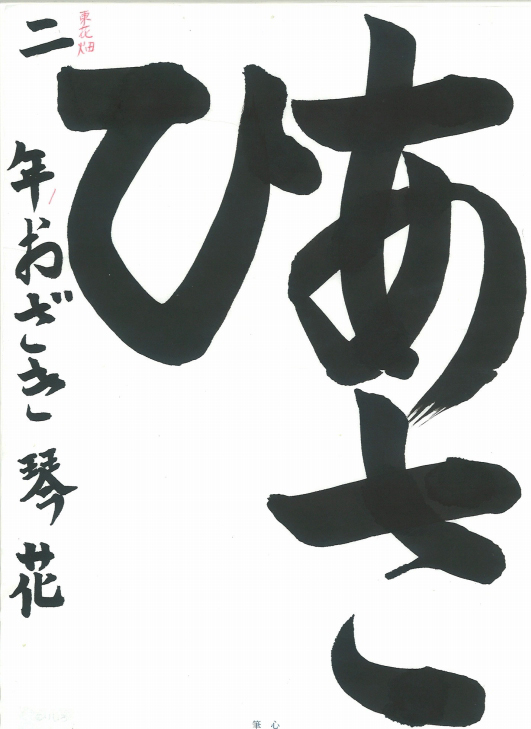 あさ
ひ
二年 おざき 琴花
東花畑
心筆